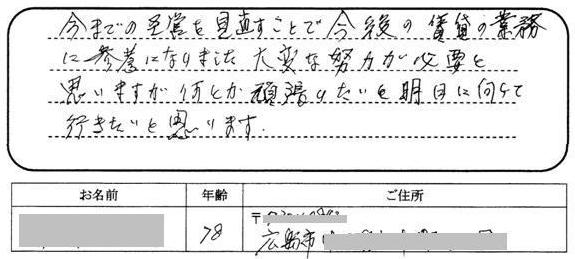 今までの運営を見直すことで今後の賃貸の業務
に参考になりました 大変な努力が必要と
思いますが何とか頑張りたいと明日に向って
行きたいと思います.
お名前 年齢 ご住所
78 〒
広島市